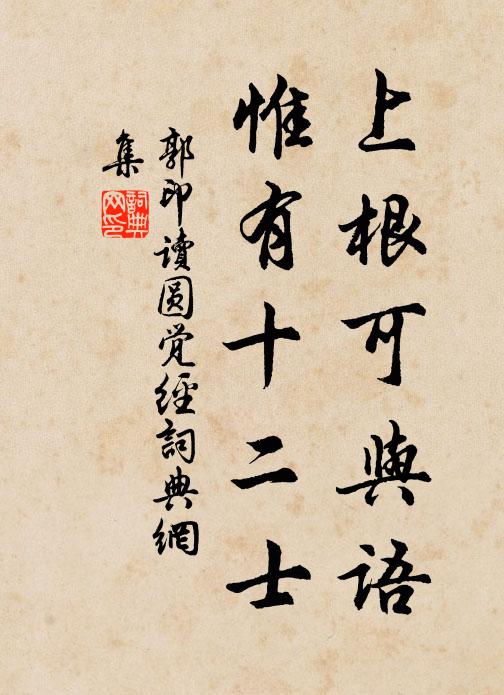 上根可與語
惟有十二士
郭印讀圆觉經詞典網
集
詞典網印